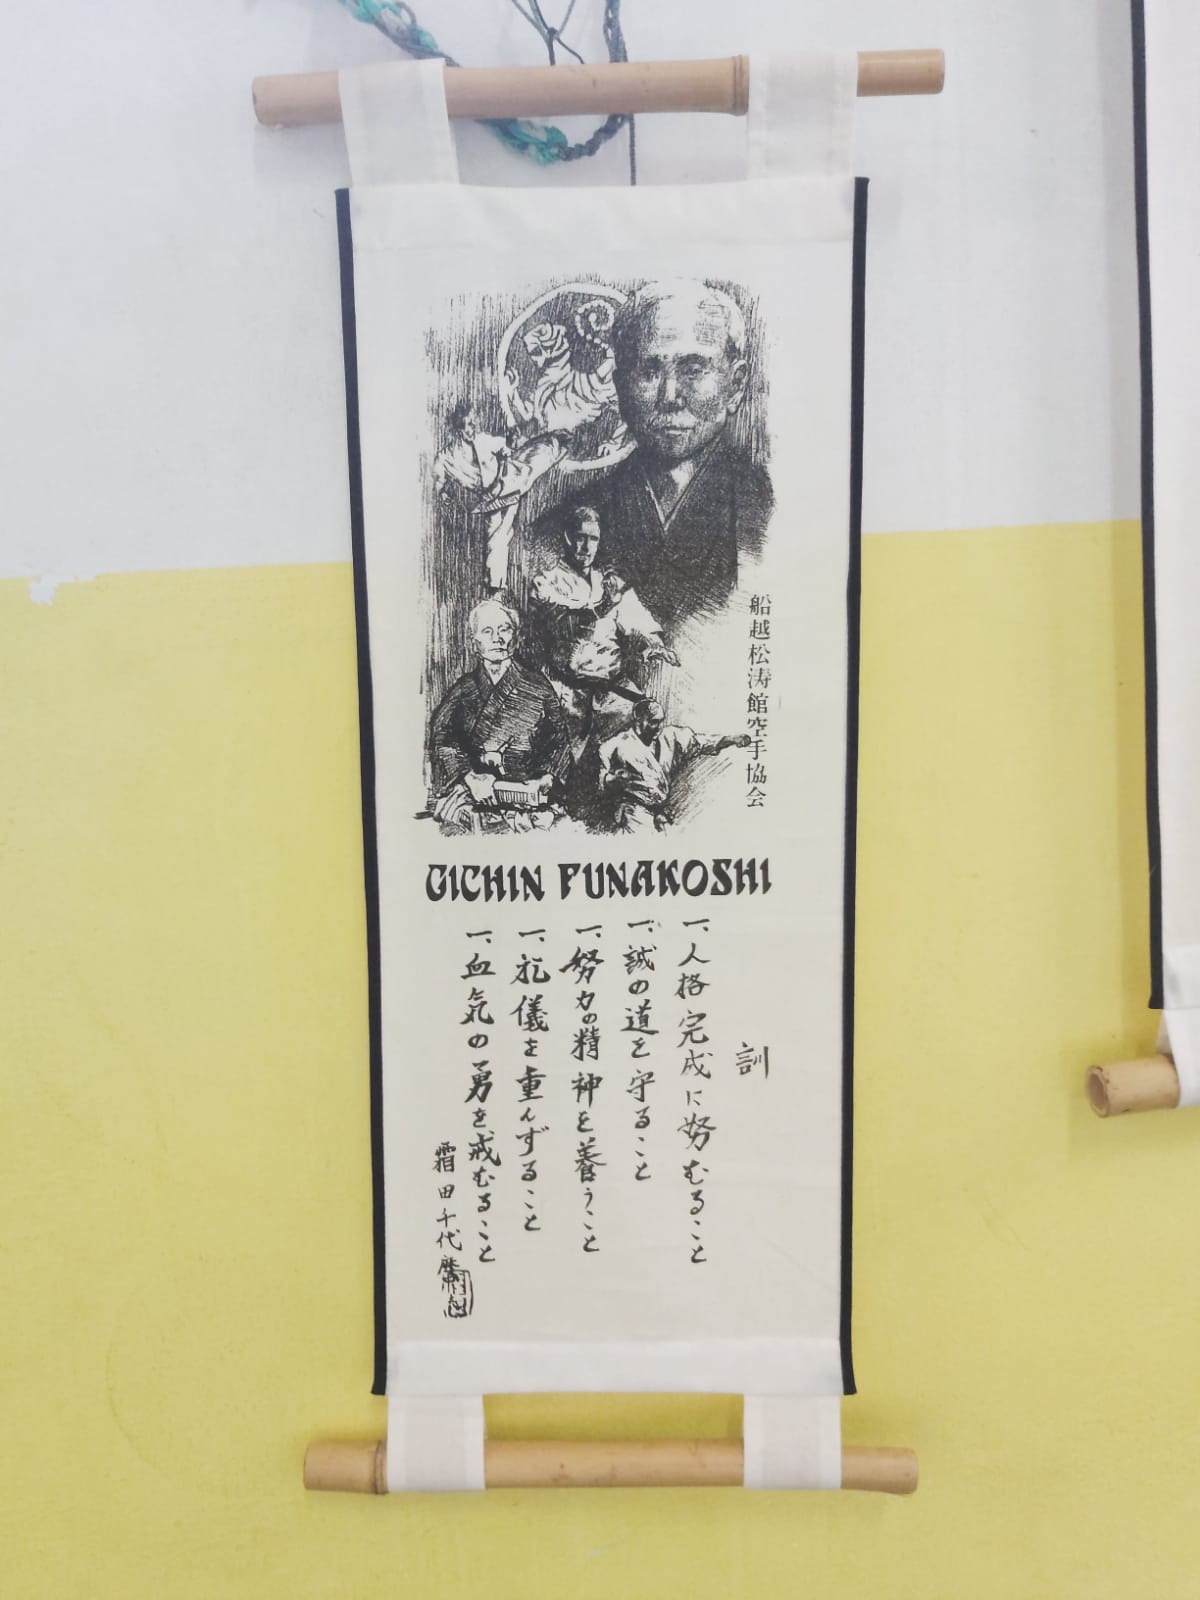 船越松涛館空手協会
GICHIN FUNAKOSHI
訓
一、人格完成に努むること
一、誠の道を守ること
一、努力の精神を養うこと
一、礼儀を重んずること
一、血気の勇を戒むること
霜田千代麿